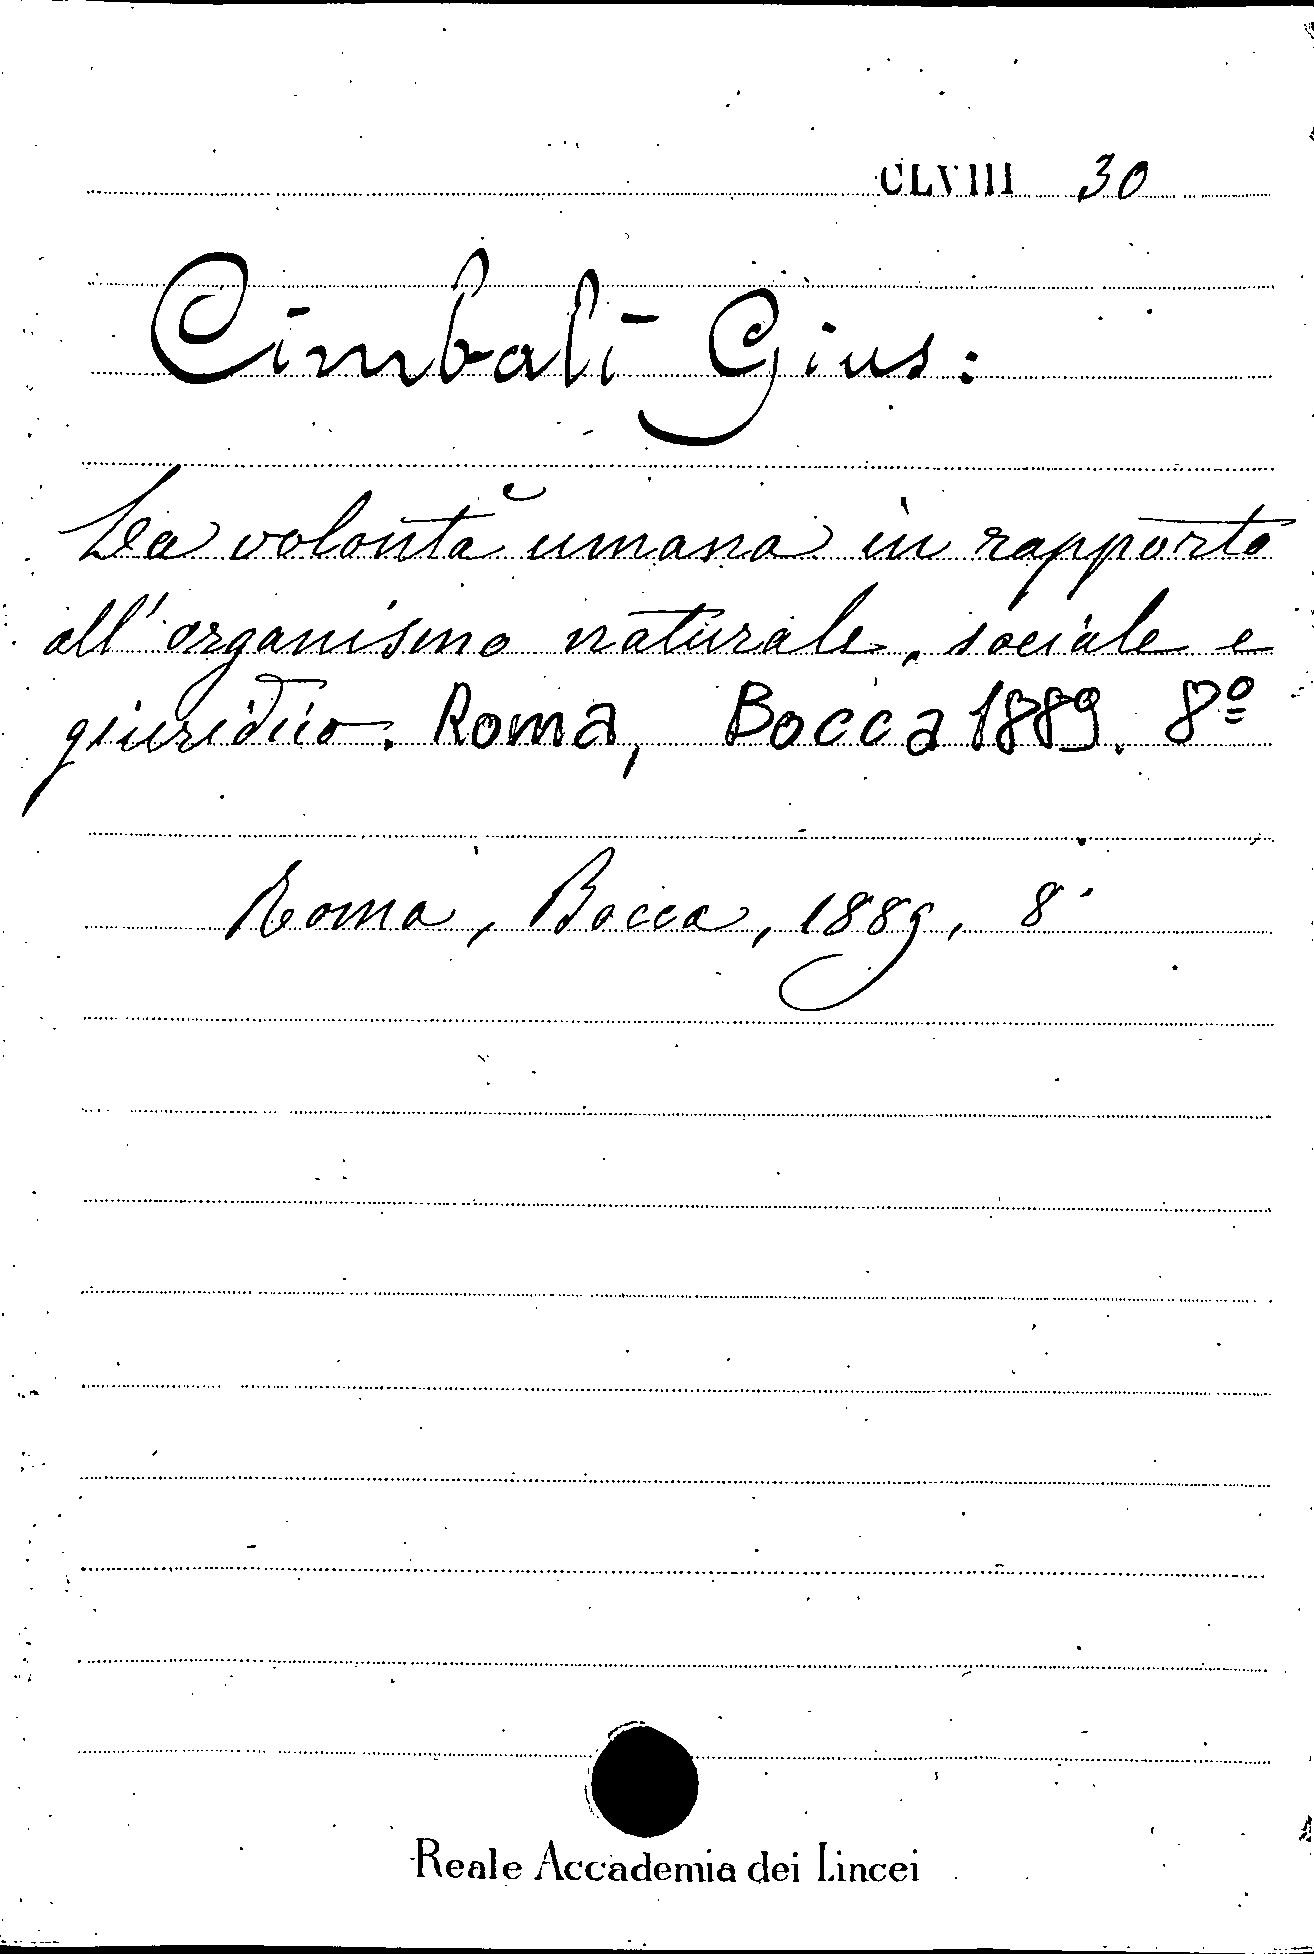 CLVIII 30
Cimbali Gius:
La volontà umana in rapporto
all'organismo naturale, sociale e
giuridico. Roma, Bocca 1889. 8º
Roma, Bocca, 1889, 8º
Reale Accademia dei Lincei